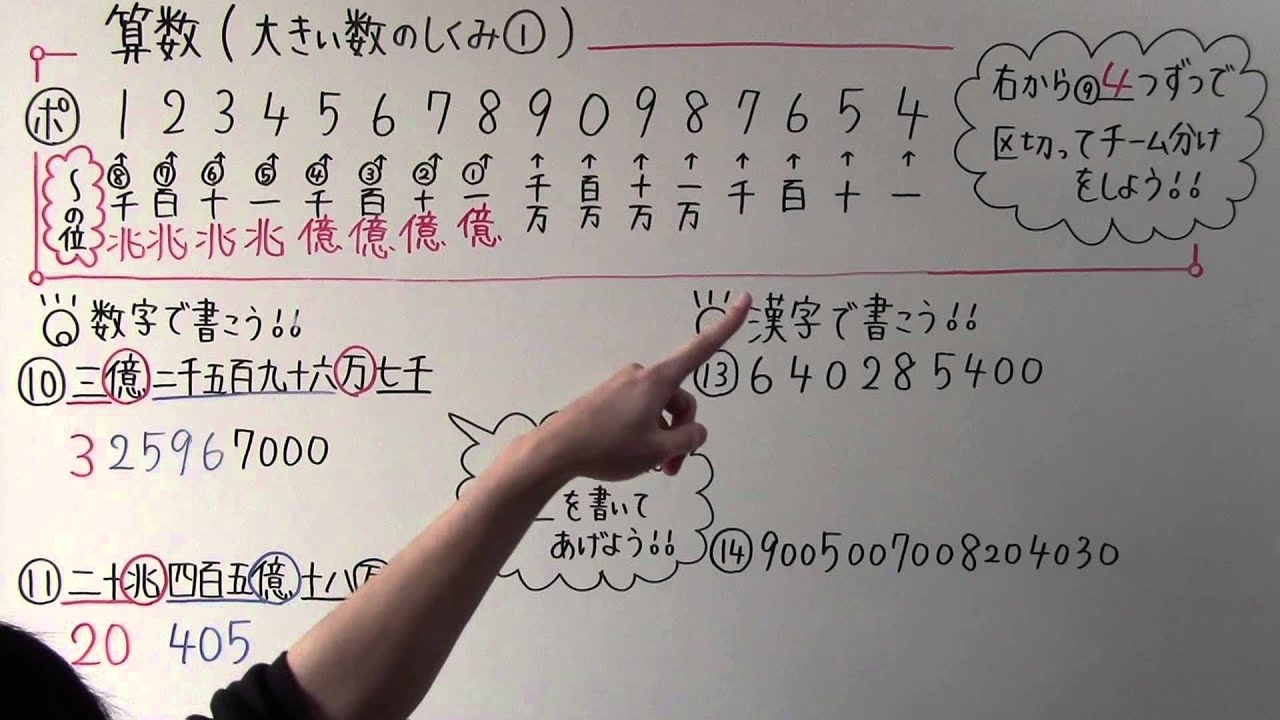 算数(大きい数のしくみ①)
ポ 1 2 3 4 5 6 7 8 9 0 9 8 7 6 5 4
~の位
↑ ↑ ↑ ↑ ↑ ↑ ↑ ↑ ↑ ↑ ↑ ↑ ↑ ↑ ↑ ↑
⑧ ⑦ ⑥ ⑤ ④ ③ ② ①
千兆 百兆 十兆 一兆 千億 百億 十億 一億 千万 百万 十万 一万 千 百 十 一
右から⑨4つずつで
区切ってチーム分け
をしよう!!
数字で書こう!!
⑩三億二千五百九十六万七千
325967000
⑪二十兆四百五億十八万
20 405
を書いて
あげよう!!
漢字で書こう!!
⑬640285400
⑭9005007008204030